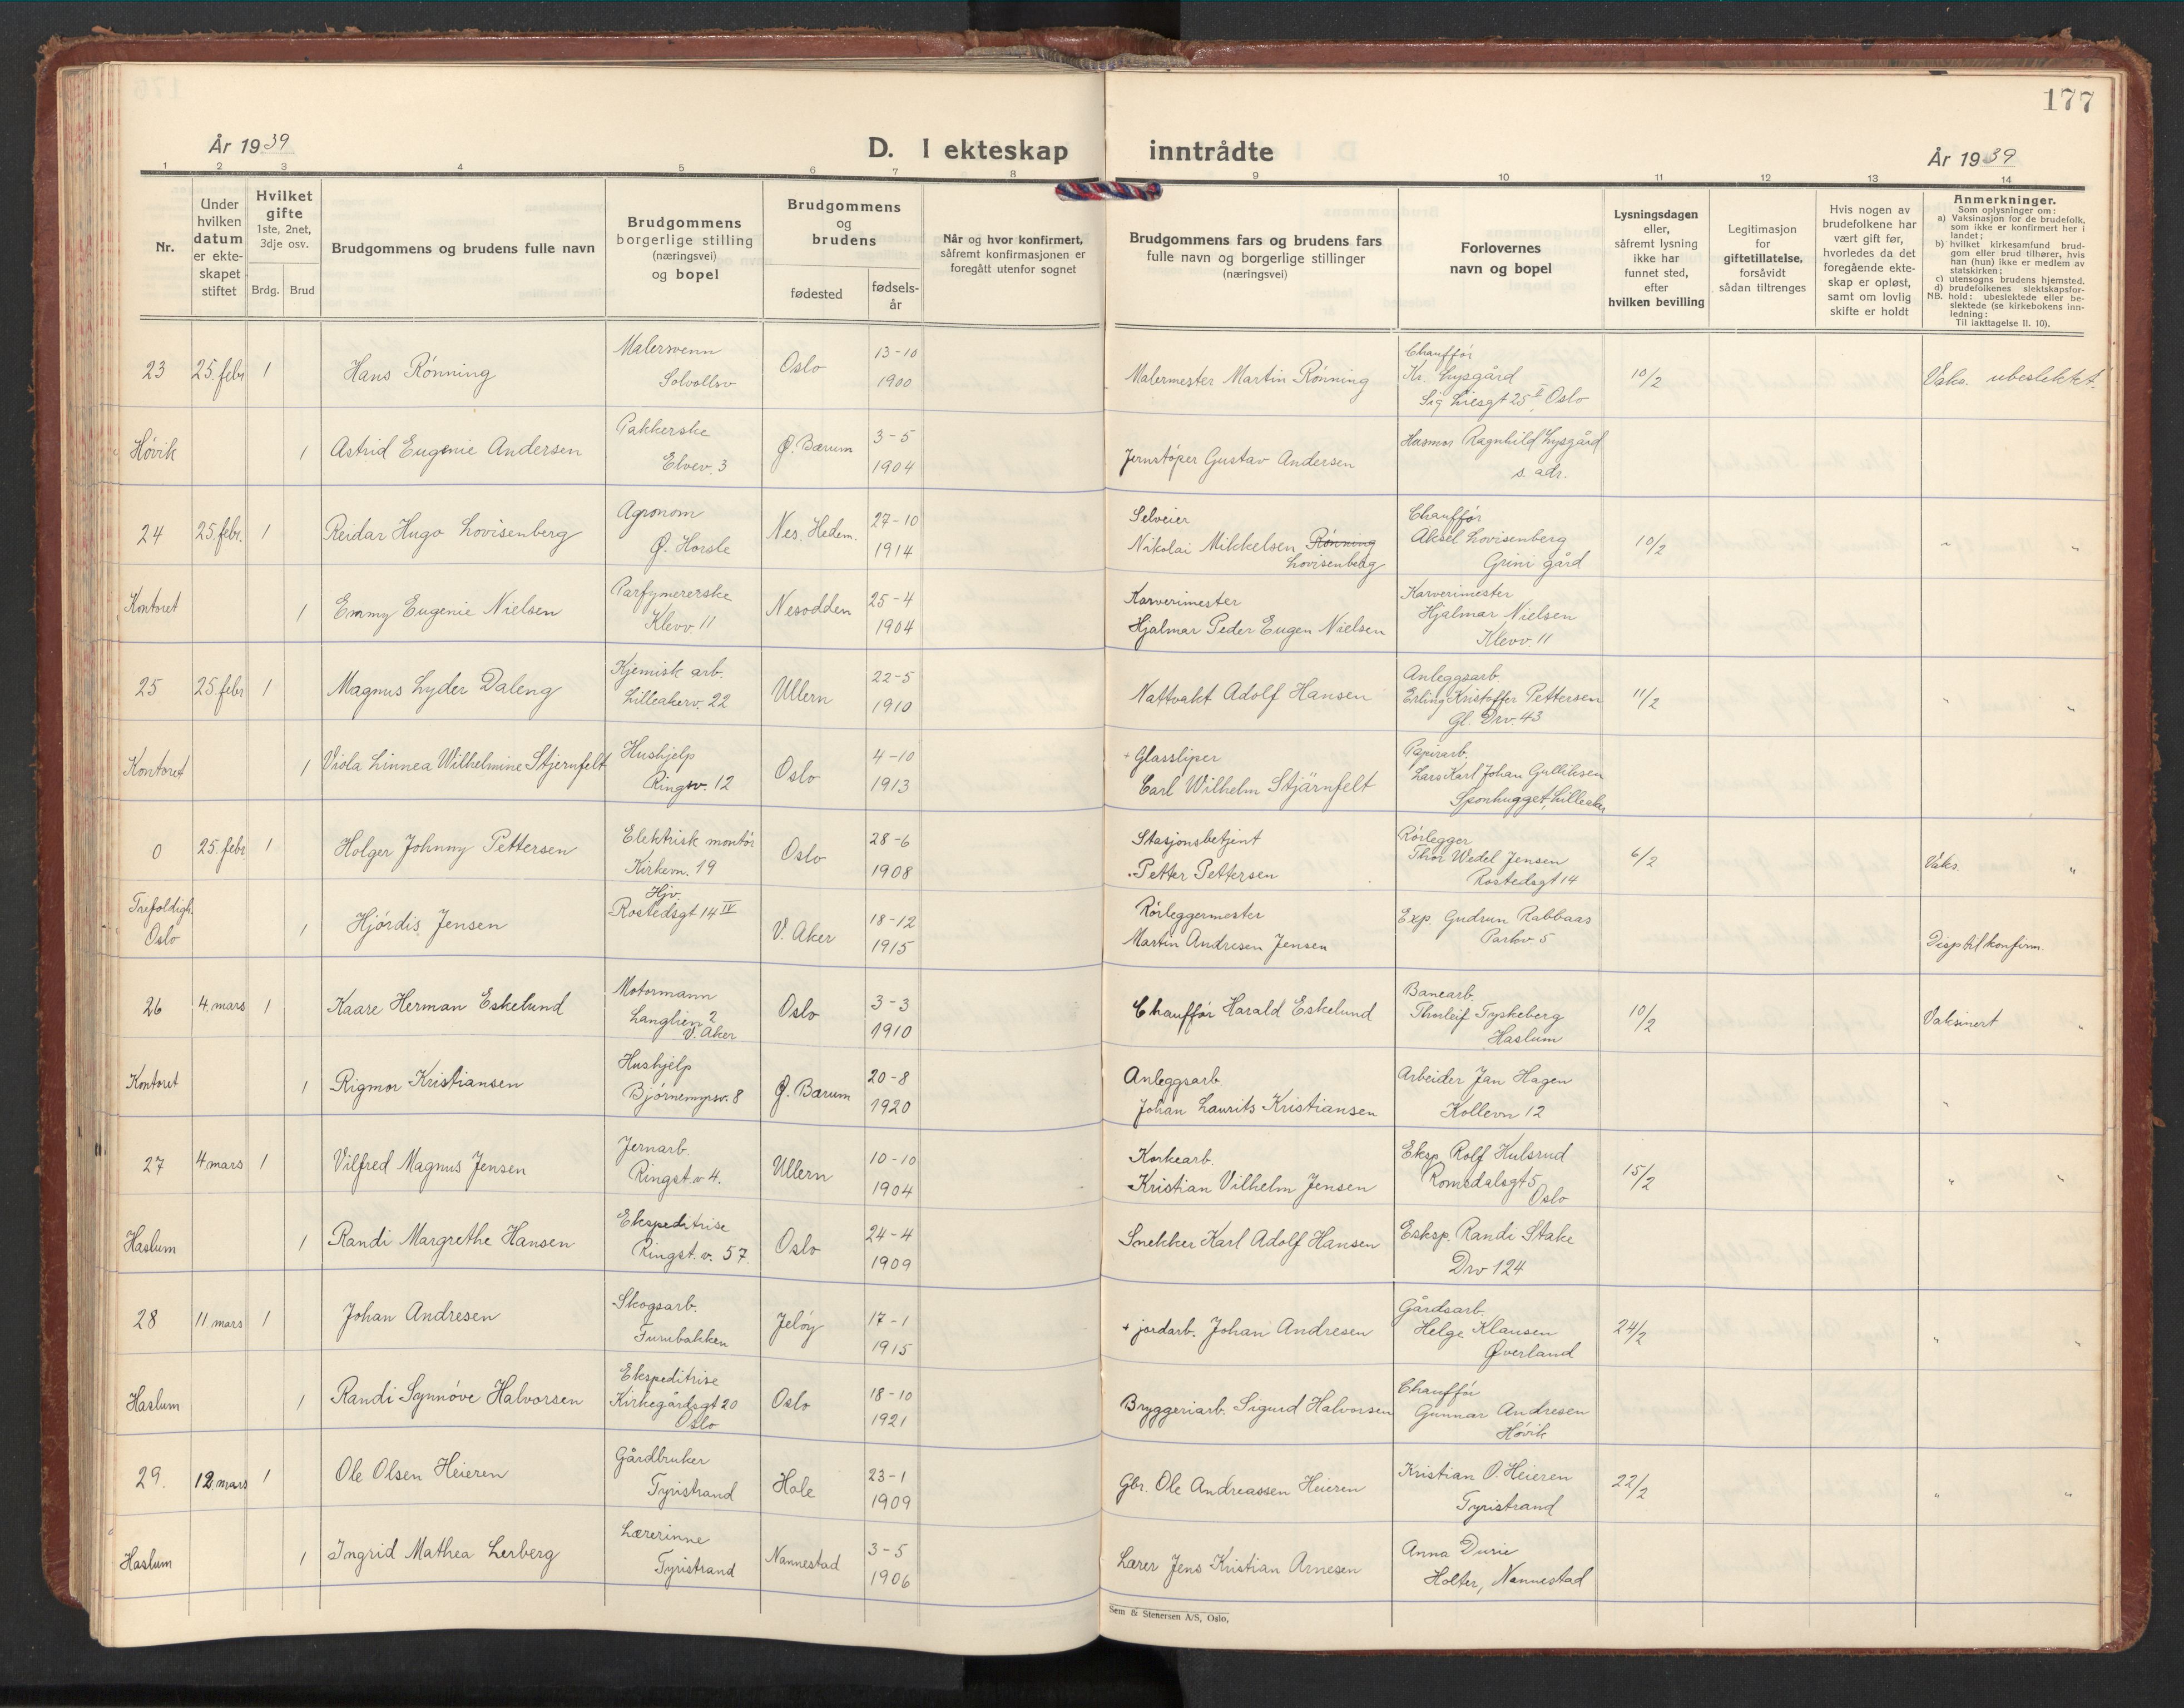 177
År 1939
D. I ekteskap inntrådte
År 1939
1 2 3 4 5 6 7 8 9 10 11 12 13 14
Nr.
Under hvilken datum er ekteskapet stiftet
Hvilket gifte 1ste, 2net, 3dje osv.
Brdg. Brud
Brudgommens og brudens fulle navn
Brudgommens borgerlige stilling (næringsvei) og bopel
Brudgommens og brudens
fødested
fødselsår
Når og hvor konfirmert, såfremt konfirmasjonen er foregått utenfor sognet
Brudgommens fars og brudens fars fulle navn og borgerlige stillinger (næringsvei)
Forlovernes navn og bopel
Lysningsdagen eller, såfremt lysning ikke har funnet sted, efter hvilken bevilling
Legitimasjon for giftetillatelse, forsåvidt sådan tiltrenges
Hvis nogen av brudefolkene har vært gift før, hvorledes da det foregående ekteskap er opløst, samt om lovlig skifte er holdt
Anmerkninger.
Som oplysninger om:
a) Vaksinasjon for de brudefolk, som ikke er konfirmert her i landet;
b) hvilket kirkesamfund brudgom eller brud tilhører, hvis han (hun) ikke er medlem av statskirken;
c) utensogns brudens hjemsted.
d) brudefolkenes slektskapsforhold: ubeslektede eller beslektede (se kirkebokens innledning:
NB. Til iakttagelse II. 10).
23 25. febr 1 Hans Rönning Malersvenn Solvollsv Oslo 13-10 1900 Malermester Martin Rönning Chaufför Kr. Lysgård Sig Liesgt 25 II, Oslo 10/2 Vaks. ubeslektet.
Hövik 1 Astrid Eugenie Andersen Pakkerske Elvev. 3 Ø. Bærum 3-5 1904 Jernstöper Gustav Andersen Husmor Ragnhild Lysgård s. adr.
24 25. febr. 1 Reidar Hugo Lovisenberg Agronom Ø. Horsle Nes, Hedem. 27-10 1914 Selveier Nikolai Mikkelsen Rönning Lovisenberg Chaufför Aksel Lovisenberg Grini gård 10/2 " "
Kontoret 1 Emmy Eugenie Nielsen Parfymererske Klevv. 11 Nesodden 25-4 1904 Garverimester Hjalmar Peder Eugen Nielsen Garverimester Hjalmar Nielsen Klevv. 11
25 25. febr 1 Magnus Lyder Daleng Kjemisk arb. Lilleakerv. 22 Ullern 22-5 1910 Nattvakt Adolf Hansen Anleggsarb. Erling Kristoffer Pettersen Gl. Drv. 43 11/2 " "
Kontoret 1 Viola Linnea Wilhelmine Stjernfelt Hushjelp Ringsv. 12 Oslo 4-10 1913 + Glassliper Carl Wilhelm Stjärnfelt Papirarb. Lars Karl Johan Gulliksen Sponhugget, Lilleaker
0 25. febr 1 Holger Johnny Pettersen Elektrisk montör Kirkevn. 19 Oslo 28-6 1908 Stasjonsbetjent Petter Pettersen Rörlegger Thor Wedel Jensen Rostedsgt 14 6/2 Vaks. "
Trefoldigh. Oslo 1 Hjördis Jensen Hjv. Rostedsgt 14 IV V. Aker 18-12 1915 Rörleggermester Martin Andresen Jensen Exp. Gudrun Rabbaas Parkv. 5 Disp til konfirm.
26 4. mars 1 Kaare Herman Eskelund Motormann Langlien 2 V. Aker Oslo 3-3 1910 Chaufför Harald Eskelund Banearb. Thorleif Tyskeberg Haslum 10/2 Vaksinert "
Kontoret 1 Rigmor Kristiansen Hushjelp Björnemyrsv. 8 Ø. Bærum 20-8 1920 Anleggsarb. Johan Laurits Kristiansen Arbeider Jan Hagen Kollevn 12 "
27 4. mars 1 Vilfred Magnus Jensen Jernarb. Ringst. v 4. Ullern 10-10 1904 Korkearb. Kristian Vilhelm Jensen Eksp. Rolf Hulsrud Romsdalsgt 5 Oslo 15/2 " "
Haslum 1 Randi Margrethe Hansen Ekspeditrise Ringst. v. 57. Oslo 24-4 1909 Snekker Karl Adolf Hansen Eksp. Randi Stake Drv 124
28 11 mars 1 Johan Andresen Skogsarb. Furubakken Jelöy 17-1 1915 + jordarb. Johan Andresen Gårdsarb. Helge Klausen Øverland 24/2 " "
Haslum 1 Randi Synnöve Halvorsen Ekspeditrise Kirkegårdsgt 20 Oslo Oslo 18-10 1921 Bryggeriarb. Sigurd Halvorsen Chaufför Gunnar Andresen Hövik
29. 12. mars 1 Ole Olsen Heieren Gårdbruker Tyristrand Hole 23-1 1909 Gbr. Ole Andreassen Heieren Kristian O. Heieren Tyristrand 22/2 " "
Haslum 1 Ingrid Mathea Lerberg Lærerinne Tyristrand Nannestad 3-5 1906 Lærer Jens Kristian Arnesen Anna Durie Holter, Nannestad
Sem & Stenersen A/S, Oslo.